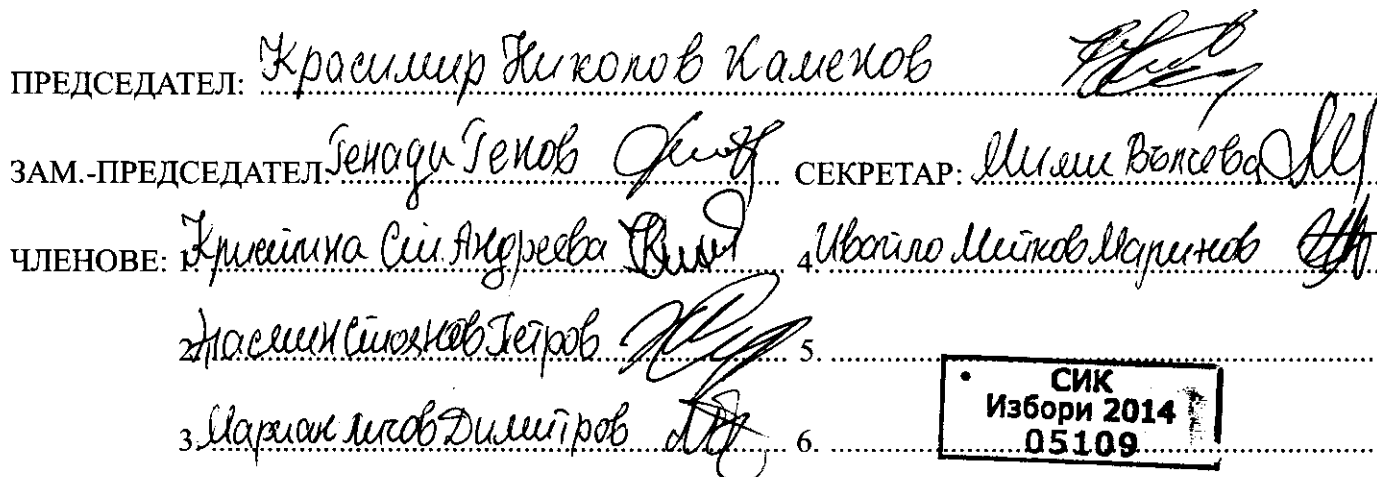 ПРЕДСЕДАТЕЛ: Красимир Николов Каменов
ЗАМ.-ПРЕДСЕДАТЕЛ: Генади Генов СЕКРЕТАР: Мими Вълчева
ЧЛЕНОВЕ: 1. Кристина Андреева 4. Ивайло Митков Маринов
2. Жасмин Стоянов Петров 5.
3. Мариан Димитров 6.
СИК
Избори 2014
05109